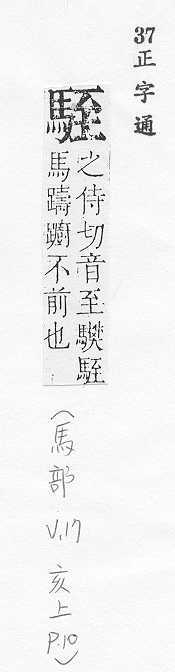 37
正字通
駤
之侍切音至駤
馬躊躕不前也
(馬部 V.17 亥上 P.10)